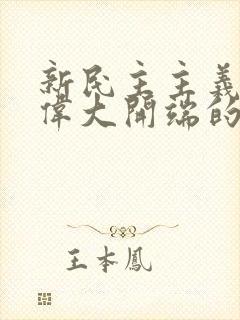 新民主主義
偉大開端的
王本鳳